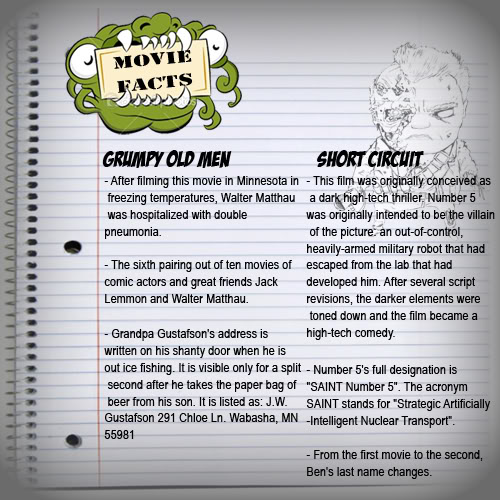 MOVIE
FACTS
GRUMPY OLD MEN
- After filming this movie in Minnesota in
freezing temperatures, Walter Matthau
was hospitalized with double
pneumonia.
- The sixth pairing out of ten movies of
comic actors and great friends Jack
Lemmon and Walter Matthau.
- Grandpa Gustafson's address is
written on his shanty door when he is
out ice fishing. It is visible only for a split
second after he takes the paper bag of
beer from his son. It is listed as: J.W.
Gustafson 291 Chloe Ln. Wabasha, MN
55981
SHORT CIRCUIT
- This film was originally conceived as
a dark high-tech thriller. Number 5
was originally intended to be the villain
of the picture: an out-of-control,
heavily-armed military robot that had
escaped from the lab that had
developed him. After several script
revisions, the darker elements were
toned down and the film became a
high-tech comedy.
- Number 5's full designation is
"SAINT Number 5". The acronym
SAINT stands for "Strategic Artificially
-Intelligent Nuclear Transport".
- From the first movie to the second,
Ben's last name changes.